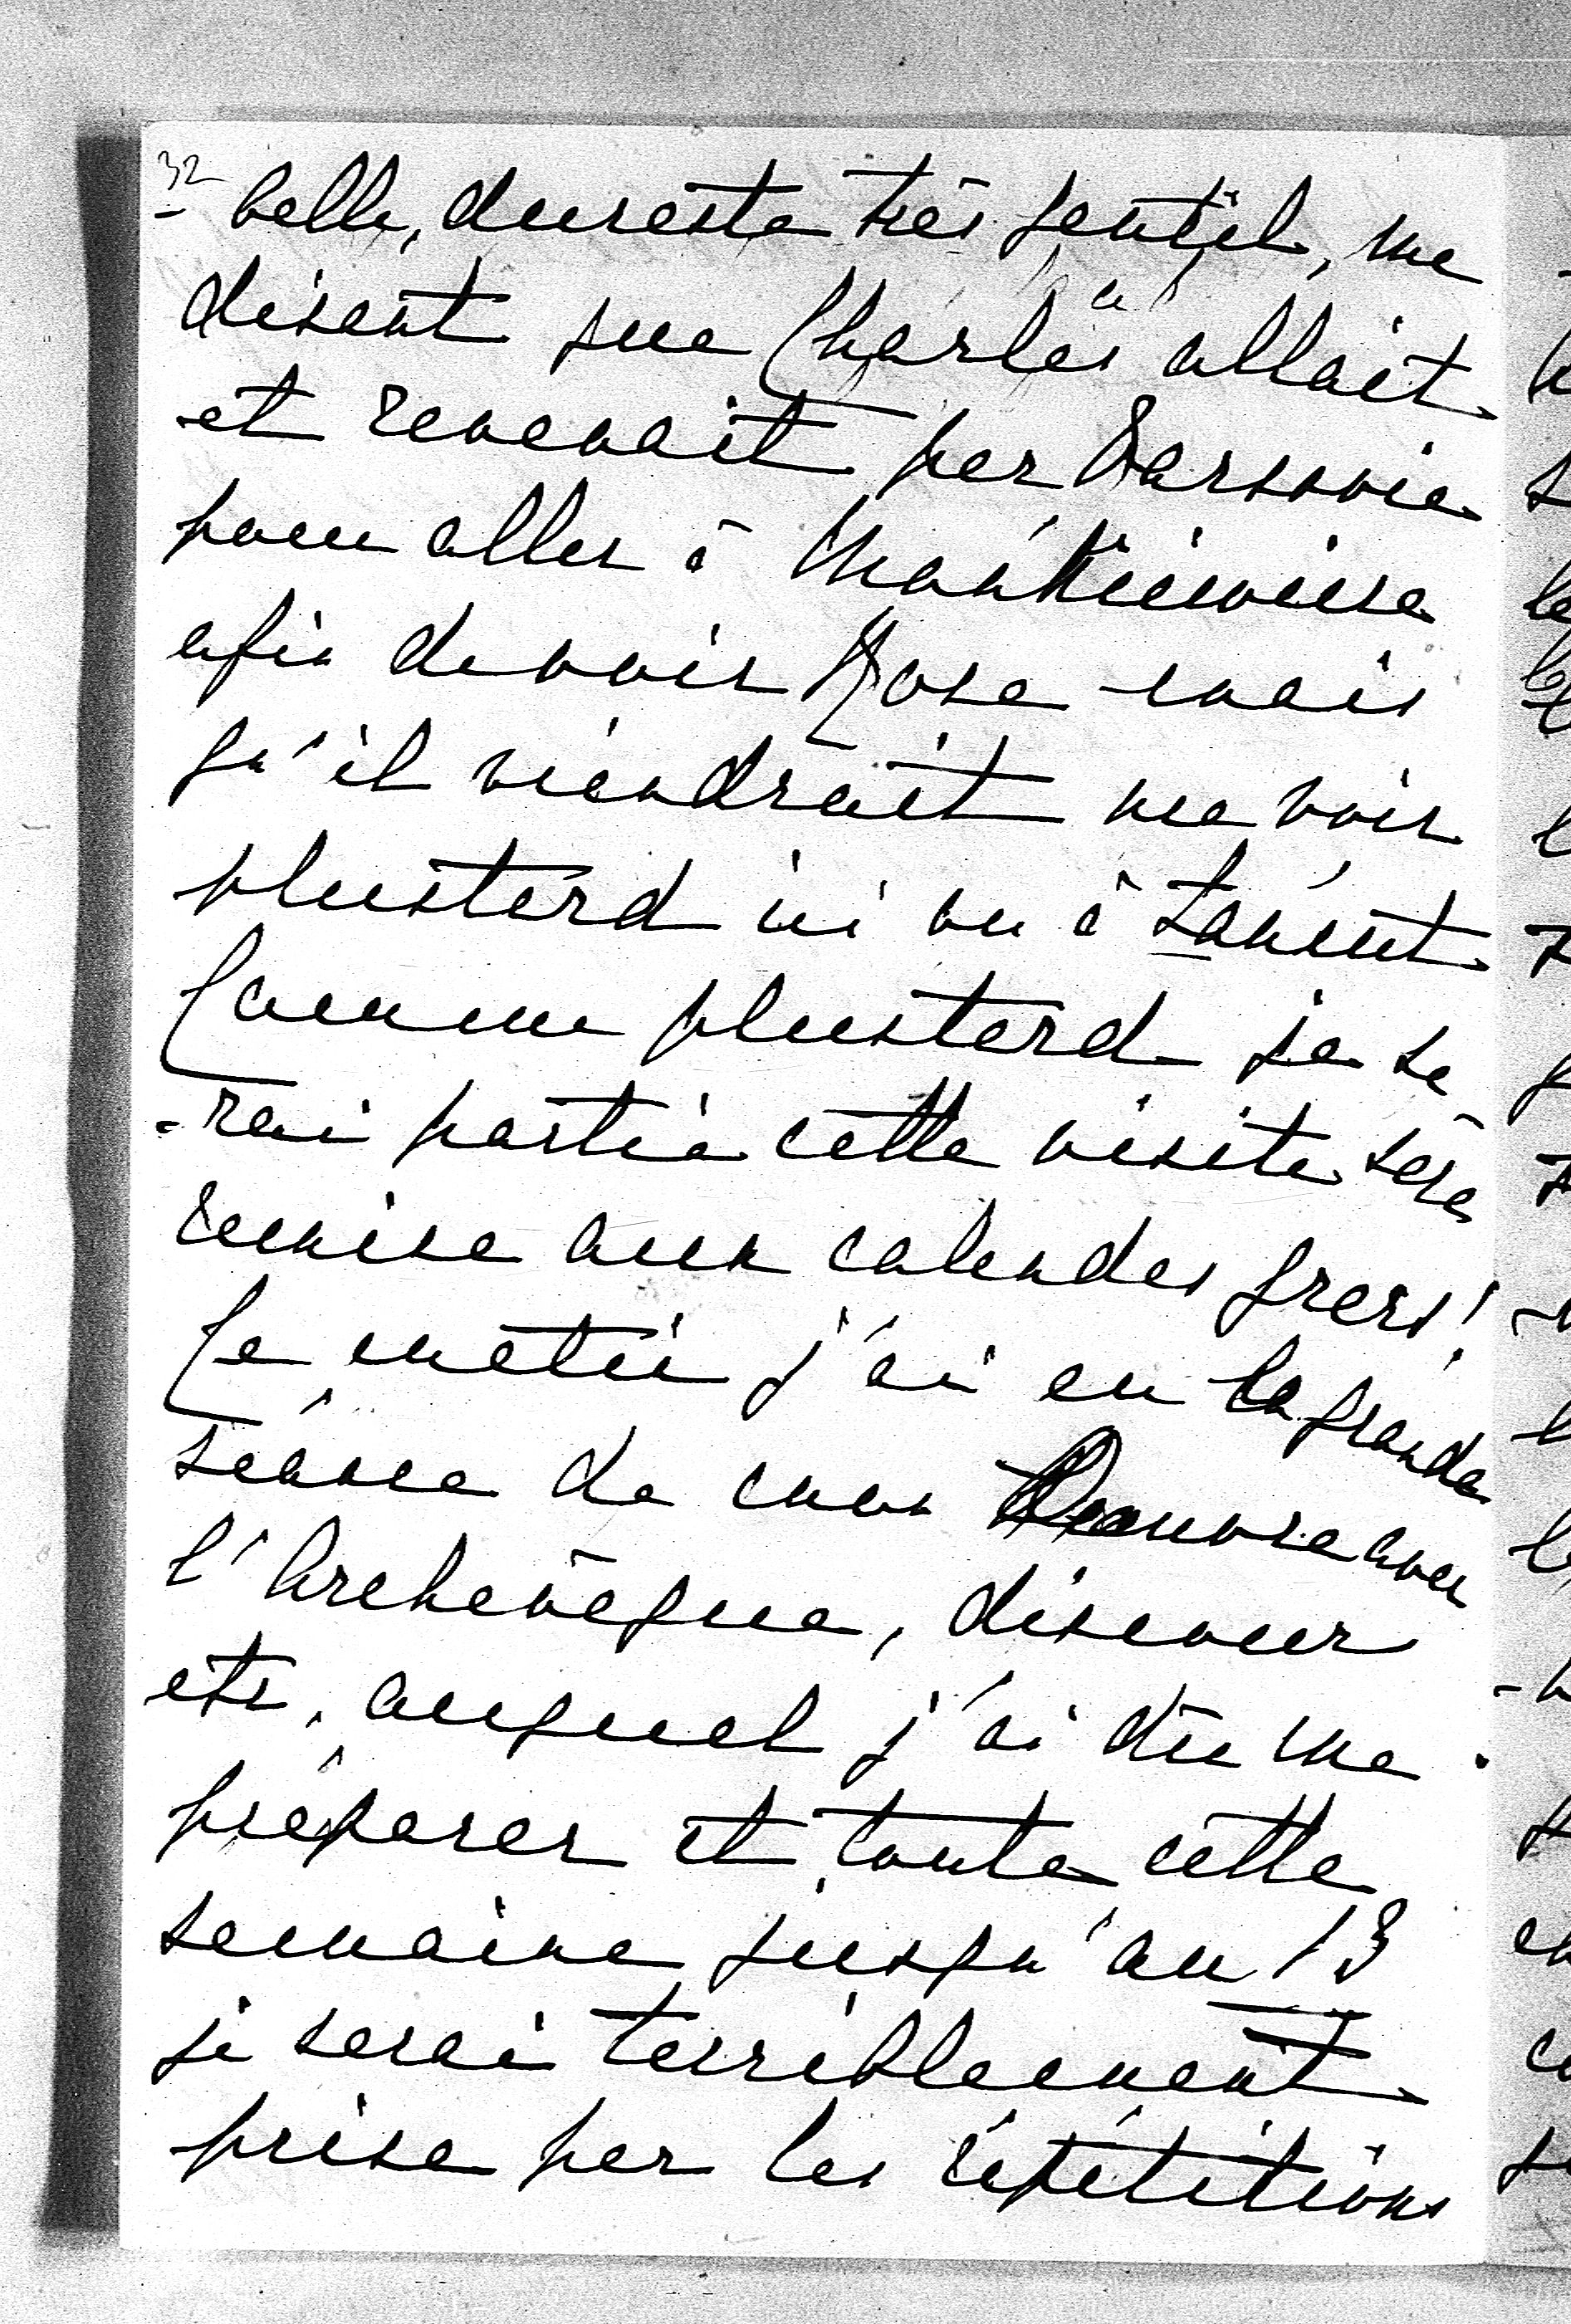 32
- belle, dureste très gentil, me
disant que Charles allait
et revenait par Varsovie
pour aller à
afin de voir Rose mais
qu'il viendrait me voir
plustard ici ou à Łańcut
Comme plustard je se
-rai partie cette visite sera
remise aux calendes grecs!
Ce matin j'ai eu la grande
séance de mon Oeuvre avec
l'Archevêque, discour
etc, auquel j'ai dû me
préparer et toute cette
semaine jusqu'au 13
je serai terriblement
prise par les répétitions